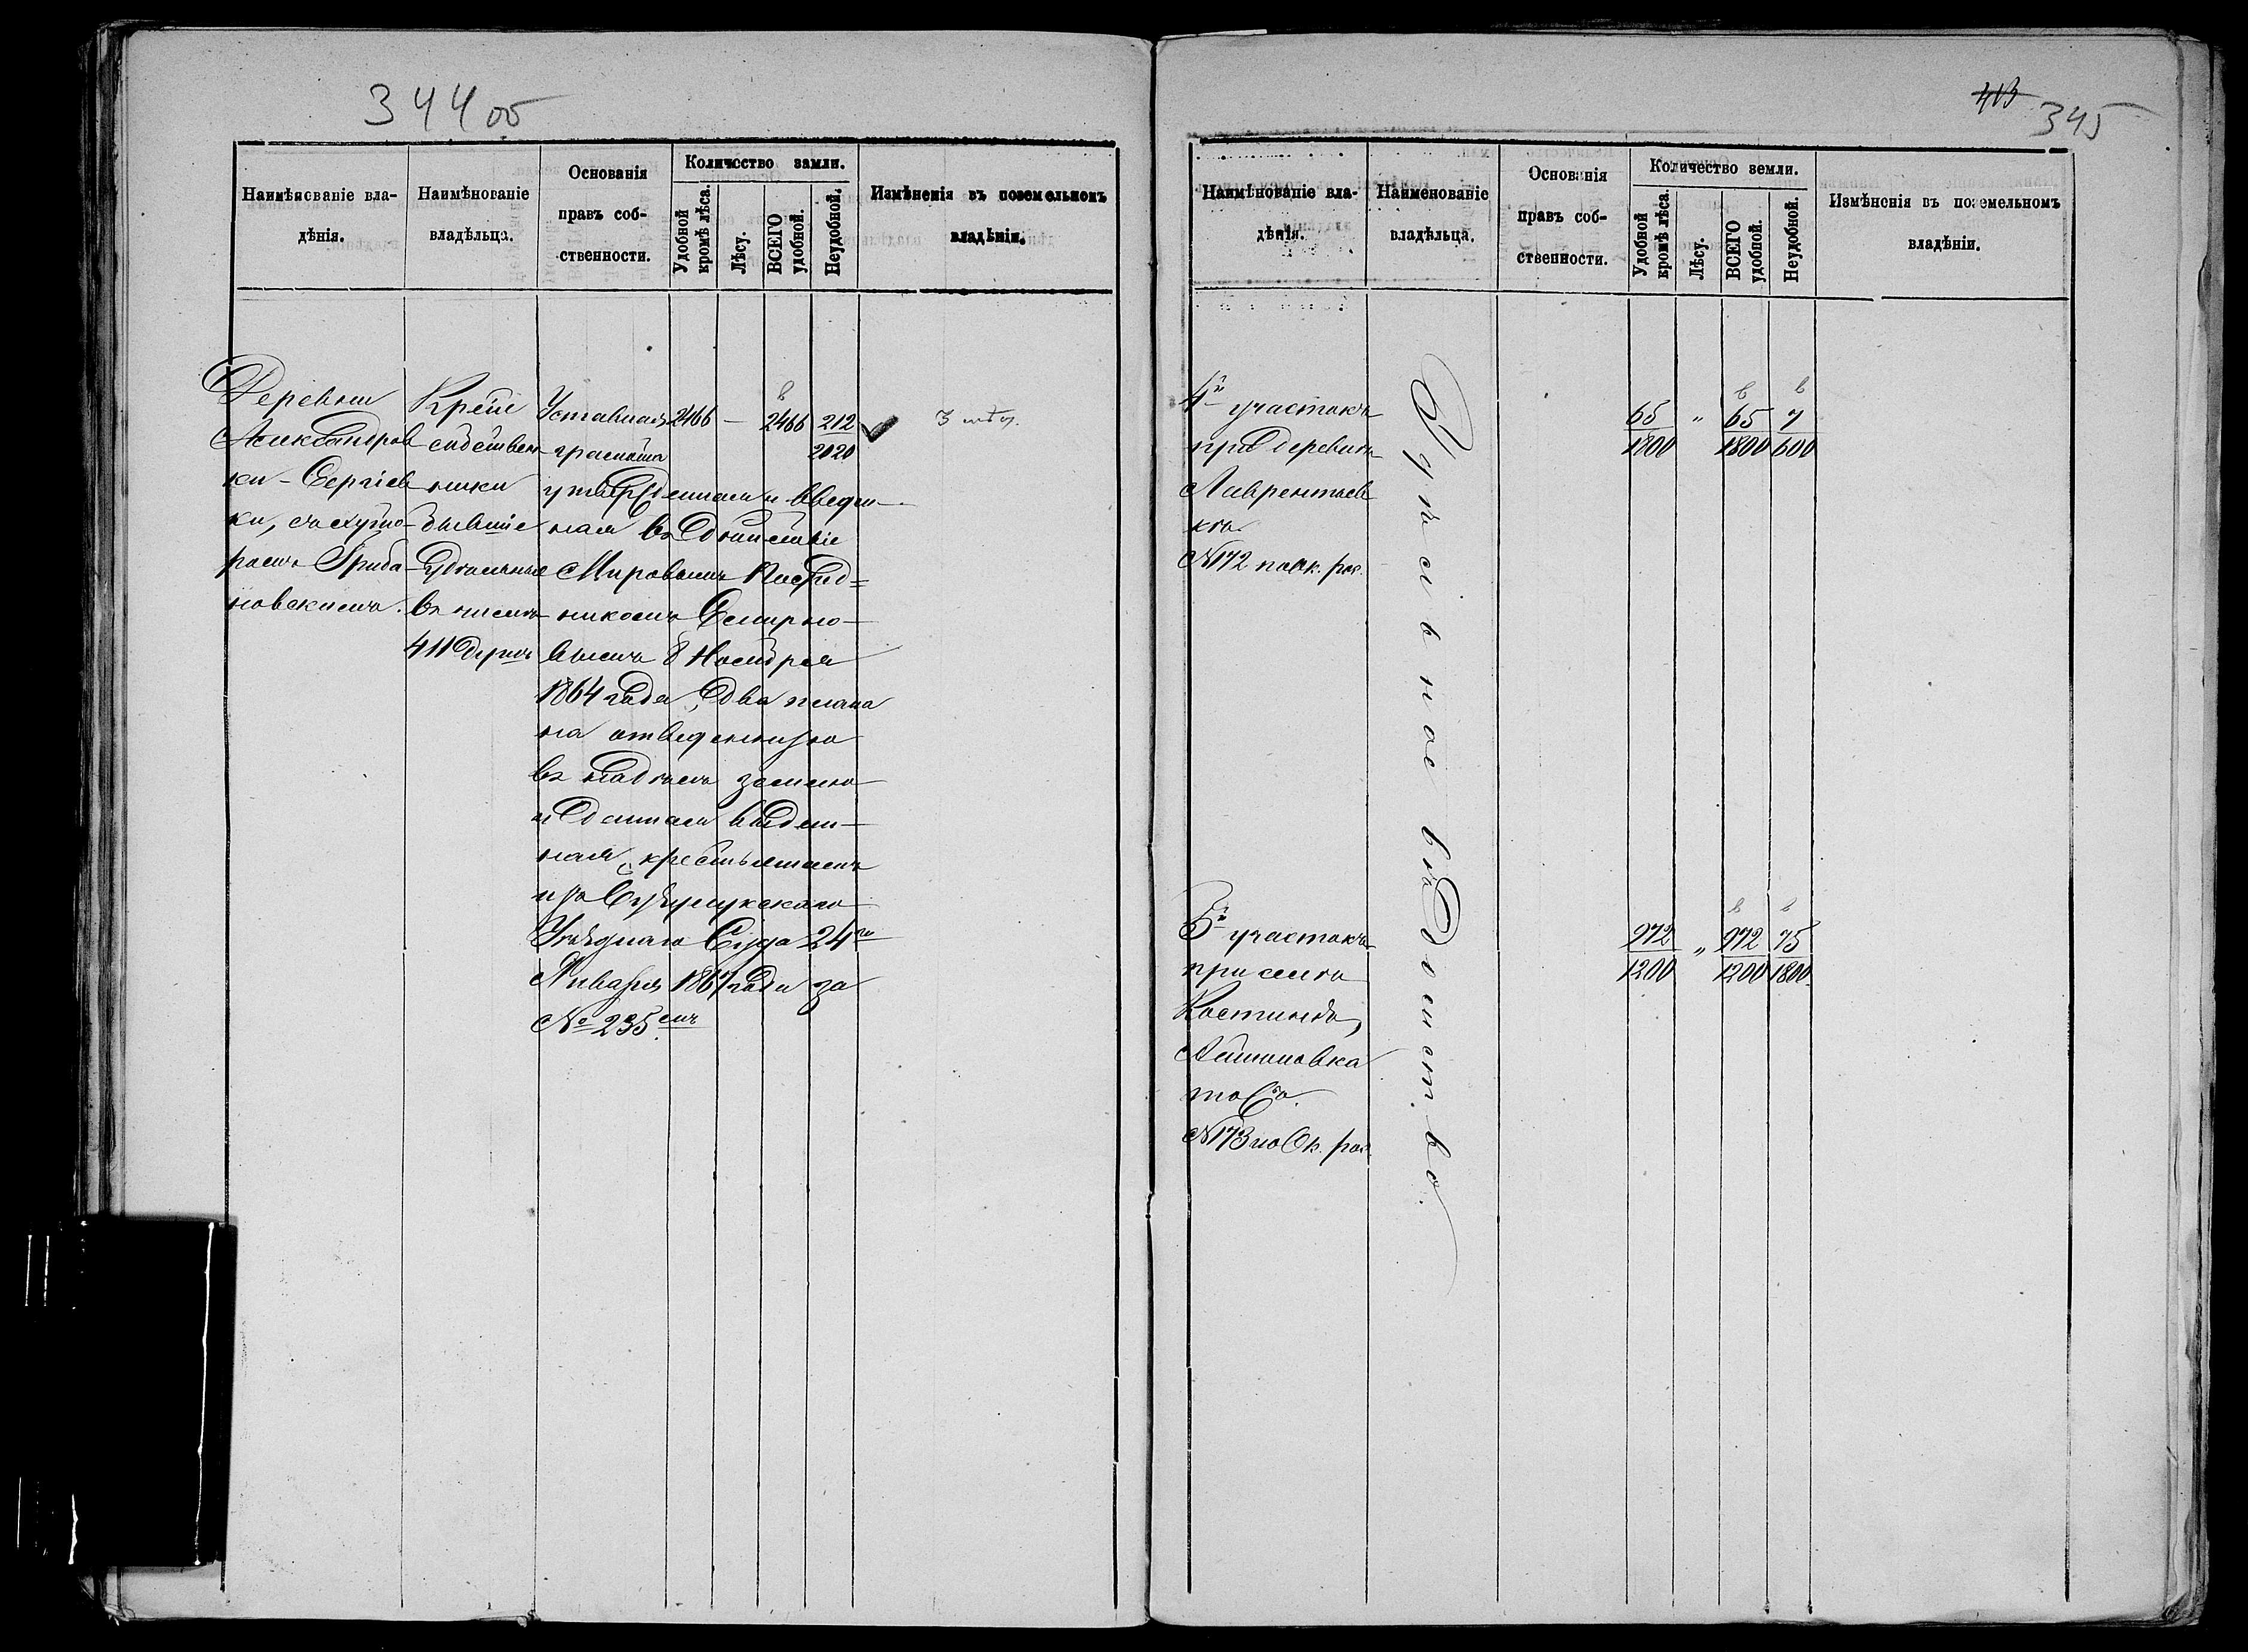 344 об
Количество земли.
Наименованіе вла-
дѣнія.
Наименованіе
владѣльца.
Основанія
правъ соб-
ственности.
Удобной
кромѣ лѣса.
Лѣсу.
ВСЕГО
удобной.
Неудобной.
Измѣненія въ поземельномъ
владѣніи.
Деревни
Александров
ки - Сергіев
ки, съ хуто-
ромъ Гриба-
новскимъ.
Крес
собствен-
ники
бывшіе
Удѣльные
въ числѣ
411 душъ
Уставная
грамота
утвержденная и введен-
ная въ дѣйствіе
Мировымъ Посред=
никомъ Смирно-
вымъ 8 Ноября
1864 года, два плана
на отведенную
въ надѣлъ землю
и данная выдан-
ная крестьянамъ
изъ Бузулукскаго
Уѣзднаго Суда 24го
Января 1867 года за
№ 235.мъ
2466 — 2466 212
2020
413
345
Количество земли.
Наименованіе вла-
дѣнія.
Наименованіе
владѣльца.
Основанія
правъ соб-
ственности.
Удобной
кромѣ лѣса.
Лѣсу.
ВСЕГО
удобной.
Неудобной.
Измѣненія въ поземельномъ
владѣніи.
4й участокъ
при деревнѣ
Лаврентьев
кѣ.
№172 по ок. рос.
65 " 65 7
1800 1800 600
Удѣльное вѣдомство.
5й участокъ
при селѣ
Костинѣ,
Ашановка
тоже.
№173 по Ок. рос.
972 " 972 75
1200 1200 1800.